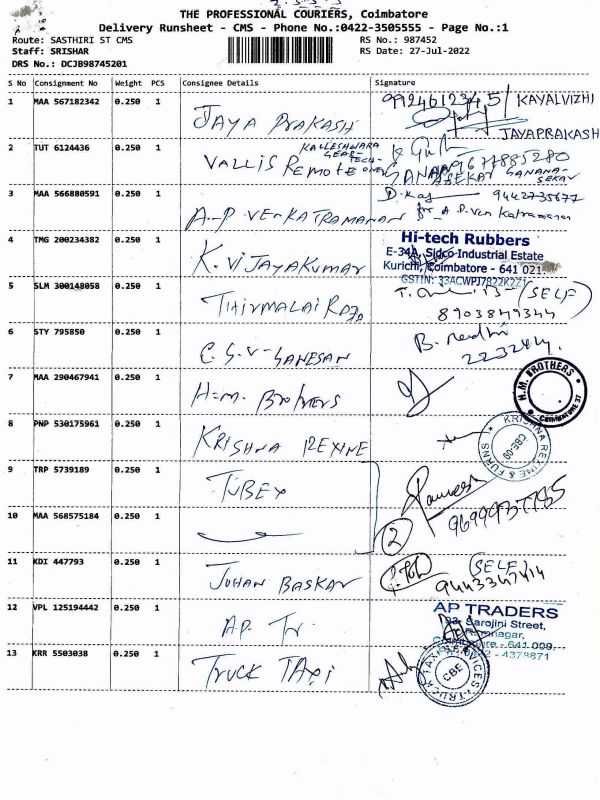 THE PROFESSIONAL COURIERS, Coimbatore
Delivery Runsheet - CMS - Phone No.:0422-3505555 - Page No.:1
Route: SASTHIRI ST CMS
RS No.: 987452
Staff: SRISHAR
RS Date: 27-Jul-2022
DRS No.: DCJB98745201
S No Consignment No Weight PCS Consignee Details Signature
1 MAA 567182342 0.250 1 JAYA PRAKASH 9924612345/ KAYALVIZHI
JAYAPRAKASH
2 TUT 6124436 0.250 1 VALLIS REMOTE
KALLESHWARA
GEAR-TECH-
9677885280
3 MAA 566880591 0.250 1 A.P VENKATRAMANAN 9442735677
for A.P.Ven Katramanan
4 TMG 200234382 0.250 1 K. VIJAYAKUMAR
Hi-tech Rubbers
E-34A, Sidco Industrial Estate
Kurichi, Coimbatore - 641 021.
GSTIN: 33ACWPJ7822K2Z1
5 SLM 300148058 0.250 1 THIRMALAI RAJA (SELF)
8903849344
6 STY 795850 0.250 1 C.G.V-GANESAN
2232844.
7 MAA 290467941 0.250 1 H.M. BROTHERS
H.M. BROTHERS
COIMBATORE 37
8 PNP 530175961 0.250 1 KRISHNA REXINE
KRISHNA REXINE & FURNS
CBE-09
9 TRP 5739189 0.250 1 TUBEX
10 MAA 568575184 0.250 1
2
11 KDI 447793 0.250 1 JOHAN BASKAR (SELF)
9443347414
12 VPL 125194442 0.250 1 A.P. Tr.
AP TRADERS
Sarojini Street,
Ramnagar,
Coimbatore - 641 009.
- 4378871
13 KRR 5503038 0.250 1 TRUCK TAXI
TRUCK TAXI SERVICES
CBE